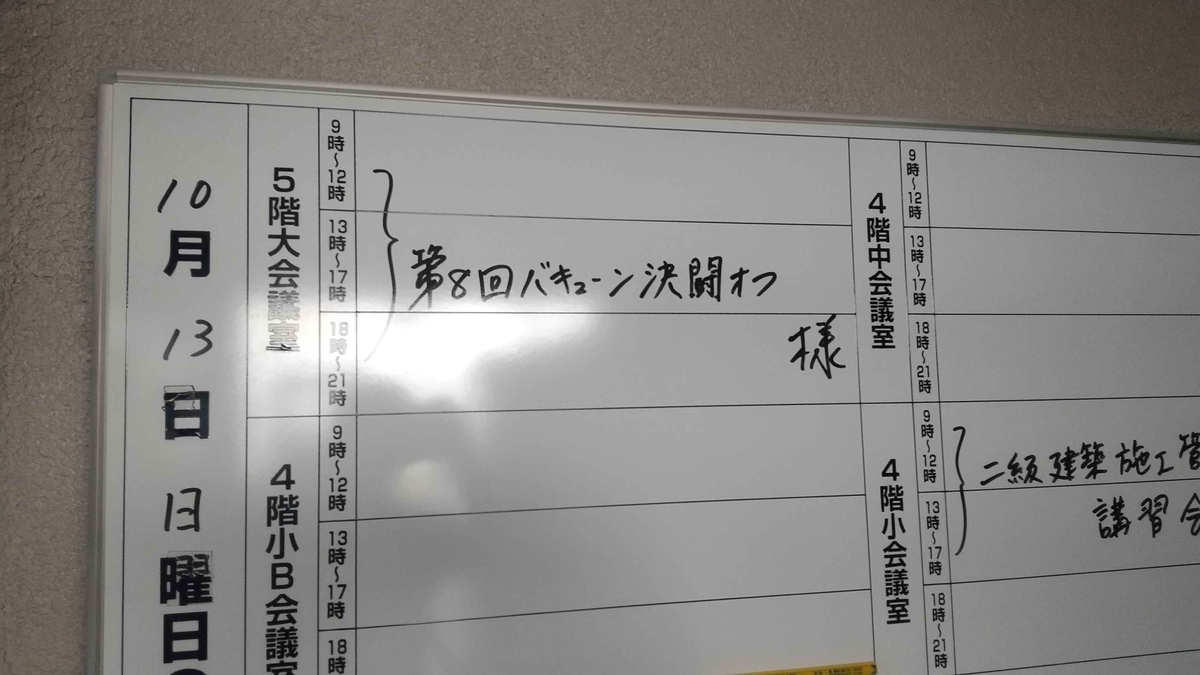 10
月
13
日
日
曜日
5階大会議室
9時~12時
13時~17時
18時~21時
第8回バキューン決闘オフ
様
4階小B会議室
9時~12時
13時~17時
18時
4階中会議室
9時~12時
13時~17時
18時~21時
4階小会議室
9時~12時
13時~17時
18時~21時
二級建築施工管
講習会